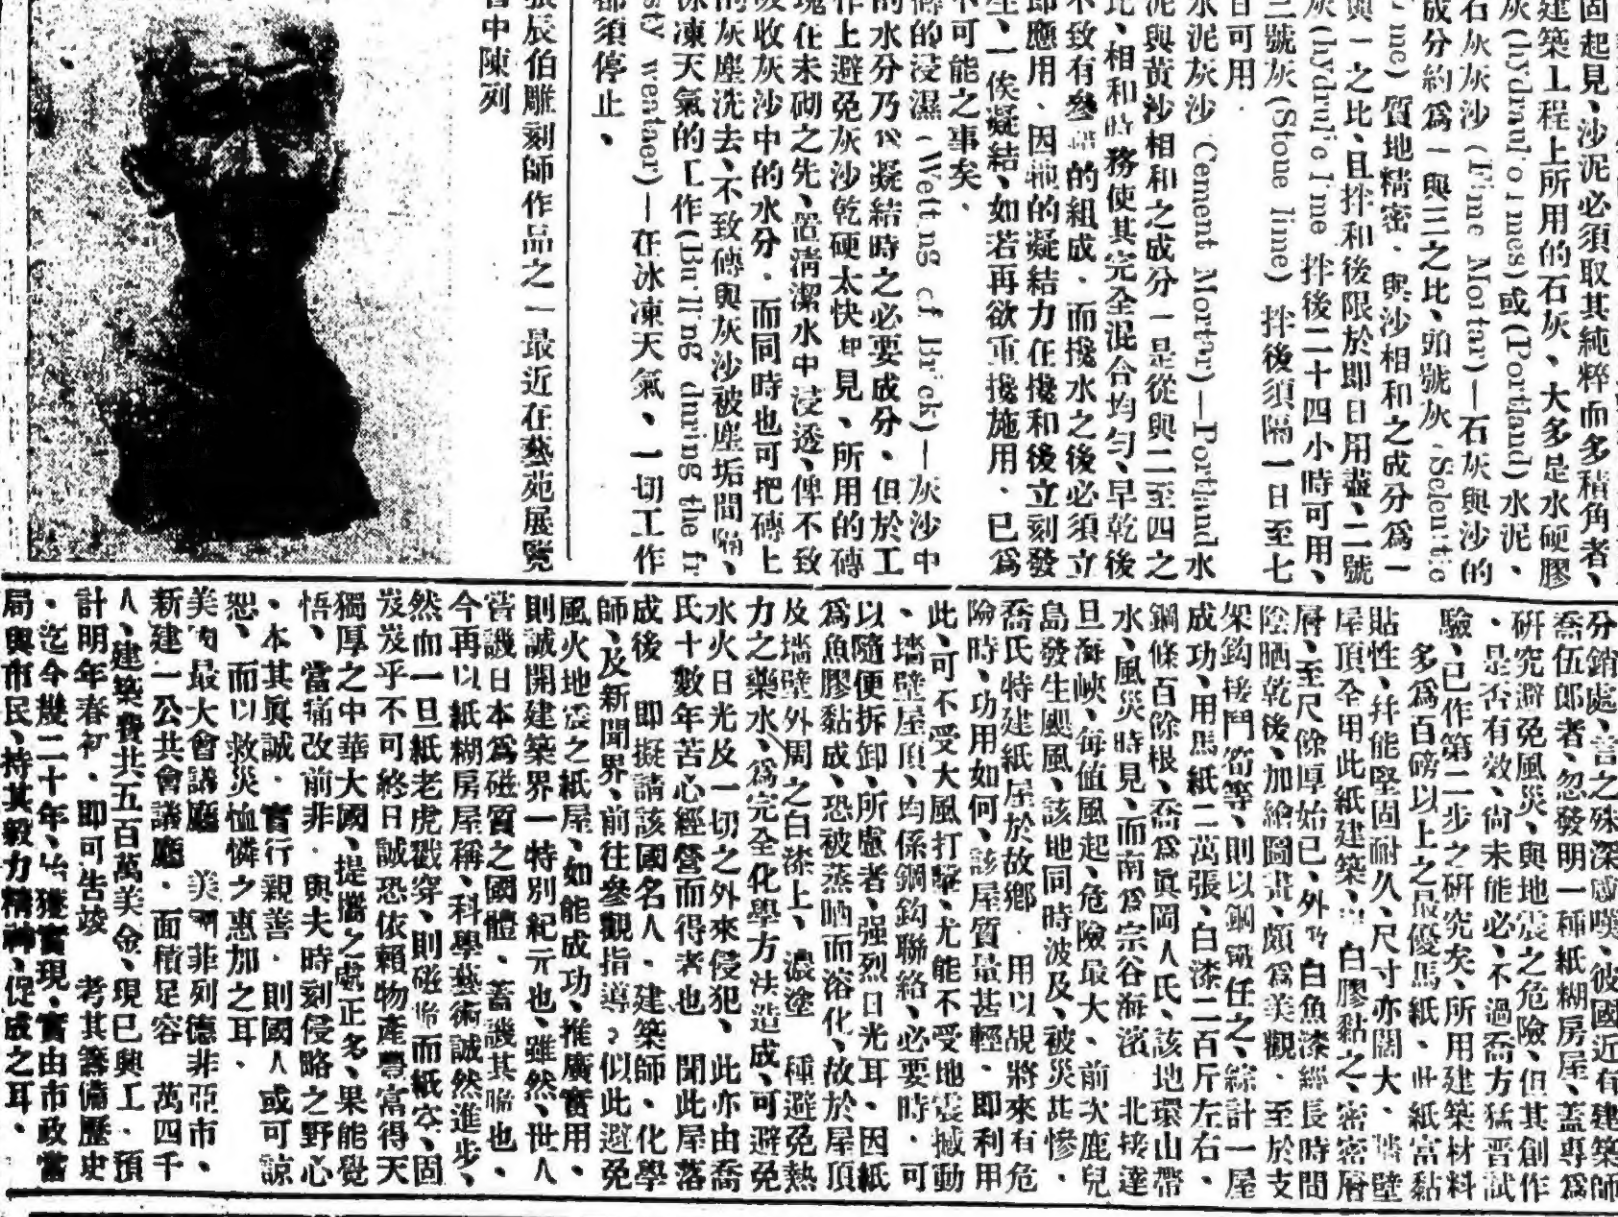 固起見、沙泥必須取其純粹而多積角者、
建築工程上所用的石灰、大多是水硬膠
灰(hydraulic limes)或(Portland)水泥、
石灰灰沙 (Lime Mortar)—石灰與沙的
成分約爲一與三之比、頭號灰
質地精密．與沙相和之成分爲一
與一之比、且拌和後限於即日用盡、二號
灰(hydrulic lime 拌後二十四小時可用、
三號灰(Stone lime) 拌後須隔一日至七
日可用．
水泥灰沙 Cement Mortar)—Portland水
泥與黃沙相和之成分一是從與二至四之
比、相和時務使其完全混合均勻、早乾後
不致有的組成．而攙水之後必須立
即應用．因牠的凝結力在攙和後立刻發
生、一俟凝結、如若再欲重攙施用．已爲
不可能之事矣．
磚的浸濕 (Wetting of Brick)—灰沙中
的水分乃爲凝結時之必要成分、但於工
作上避免灰沙乾硬太快起見、所用的磚
塊在未砌之先、置清潔水中浸透、俾不致
吸收灰沙中的水分．而同時也可把磚上
的灰塵洗去、不致磚與灰沙被塵垢間隔、
冰凍天氣的工作(Building during the fr
sty weather)—在冰凍天氣、一切工作
都須停止、
張辰伯雕刻師作品之一最近在藝苑展覽
會中陳列
分銷處、言之殊深感嘆、彼國近有建築師
喬伍郎者、忽發明一種紙糊房屋、蓋專爲
研究避免風災、與地震之危險、但其創作
、是否有效、尙未能必、不過喬方猛晋試
驗、已作第二步之研究矣、所用建築材料
多爲百磅以上之最優馬紙、此紙富黏
貼性、幷能堅固耐久、尺寸亦闊大、牆壁
屋頂全用此紙建築、以白膠黏之、密密層
層、至尺餘厚始已、外以白魚漆經長時間
陰晒乾後、加繪圖畫、頗爲美觀．至於支
架鈎接鬥筍等、則以鋼鐵任之、綜計一屋
成功、用馬紙二萬張、白漆二百斤左右、
鋼條百餘根、喬爲眞岡人氏、該地環山帶
水、風災時見、而南爲宗谷海濱．北接達
旦海峽、每值風起、危險最大、前次鹿兒
島發生颶風、該地同時波及、被災甚慘．
喬氏特建紙屋於故鄉．用以覘將來有危
險時、功用如何、該屋質量甚輕．即利用
此、可不受大風打擊、尤能不受地震撼動
、墻壁屋頂、均係鋼鈎聯絡、必要時．可
以隨便拆卸、所慮者、强烈日光耳．因紙
爲魚膠黏成、恐被蒸晒而溶化、故於屋頂
及墻壁外周之白漆上、濃塗一種避免熱
力之藥水、爲完全化學方法造成、可避免
水火日光及一切之外來侵犯、此亦由喬
氏十數年苦心經營而得者也　聞此屋落
成後　即擬請該國名人．建築師、化學
師、及新聞界、前往參觀指導？似此避免
風火地震之紙屋、如能成功、推廣實用、
則誠開建築界一特別紀元也、雖然、世人
嘗譏日本爲磁質之國體、蓄譏其脆也、
今再以紙糊房屋稱、科學藝術誠然進步、
然而一旦紙老虎戳穿、則磁脆而紙空、固
岌岌乎不可終日誠恐依賴物產豐富得天
獨厚之中華大國、提攜之處正多、果能覺
悟、當痛改前非．與夫時刻侵略之野心
、本其眞誠．實行親善．則國人或可諒
恕、而以救災恤憐之惠加之耳．
美內最大會議廳　美洲菲列德菲亞市、
新建一公共會議廳．面積足容　萬四千
人、建築費共五百萬美金、現已興工．預
計明年春初．即可告竣　考其籌備歷史
．迄今幾二十年、始獲實現、實由市政當
局與市民、持其毅力精神、促成之耳．